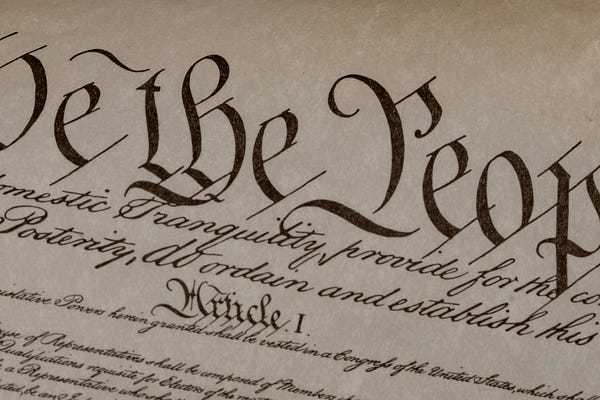 We the Peop
omestic Tranquility, provide for the co
Posterity, do ordain and establish this
Article I
Powers herein granted shall be vested in a Congress of the United States, which shall
of Representatives shall be composed of Members
Qualifications requisite for Electors of the mos
a Representative who sha